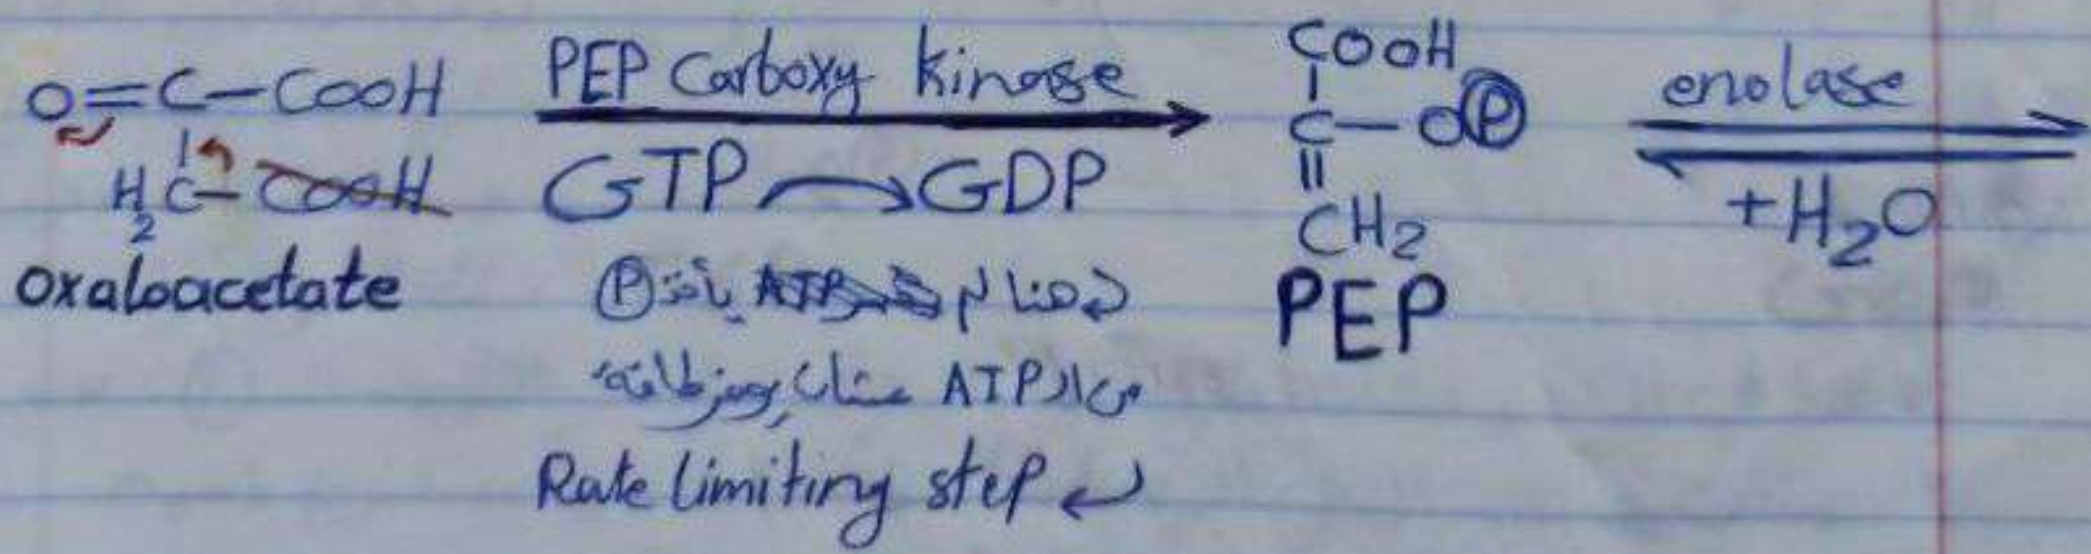 O=C-COOH
H₂C-COOH
oxaloacetate
PEP Carboxy kinase
GTP → GDP
هنا لم يأخذ P
من الـ ATP عشان يوفر طاقة
Rate limiting step
COOH
C-O P
CH₂
PEP
enolase
+H₂O